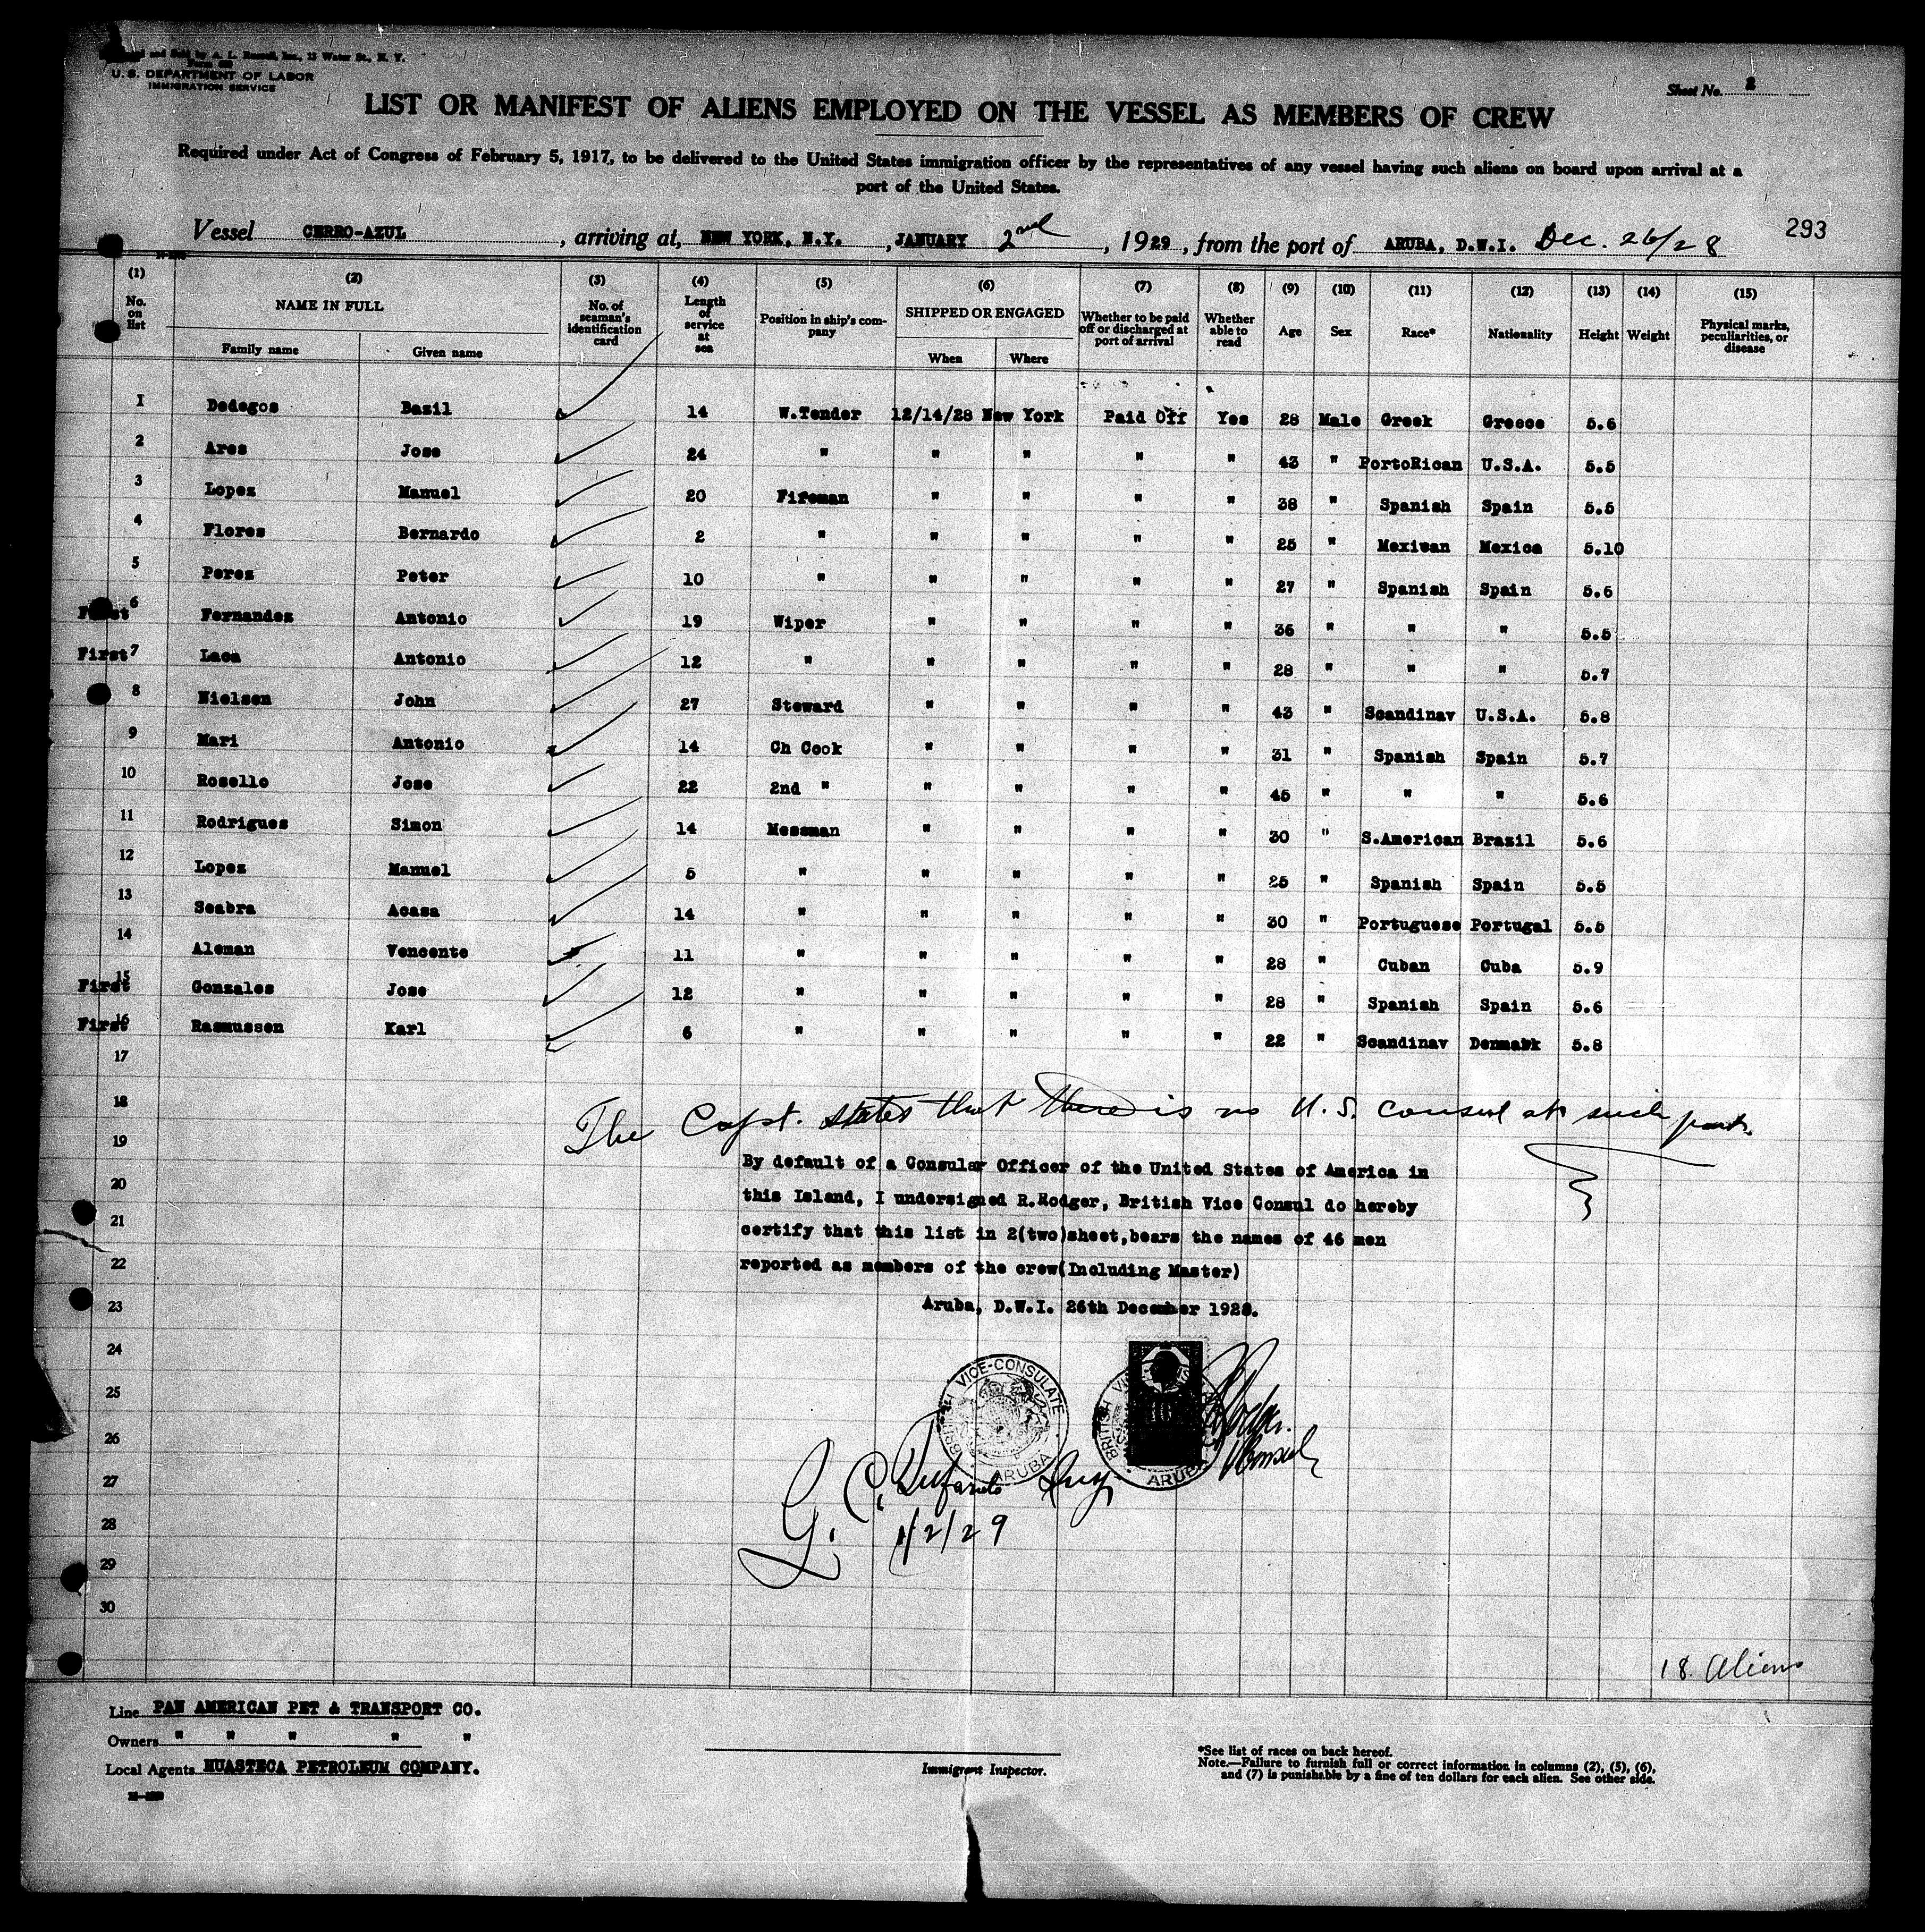 and Sold by A. L. Russell, Inc., 12 Water St., N. Y.
U. S. DEPARTMENT OF LABOR
IMMIGRATION SERVICE
Sheet No. 2
LIST OR MANIFEST OF ALIENS EMPLOYED ON THE VESSEL AS MEMBERS OF CREW
Required under Act of Congress of February 5, 1917, to be delivered to the United States immigration officer by the representatives of any vessel having such aliens on board upon arrival at a
port of the United States.
Vessel CERRO-AZUL, arriving at, NEW YORK, N.Y., JANUARY 2nd, 1929, from the port of ARUBA, D.W.I. Dec. 26/28
293
(1) (2) (3) (4) (5) (6) (7) (8) (9) (10) (11) (12) (13) (14) (15)
No. on list NAME IN FULL Family name Given name No. of seaman's identification card Length of service at sea Position in ship's company SHIPPED OR ENGAGED When Where Whether to be paid off or discharged at port of arrival Whether able to read Age Sex Race* Nationality Height Weight Physical marks, peculiarities, or disease
1 Dedegos Basil 14 W.Tender 12/14/28 New York Paid Off Yes 28 Male Greek Greece 5.6
2 Ares Jose 24 " " " " " 43 " PortoRican U.S.A. 5.5
3 Lopez Manuel 20 Fireman " " " " 38 " Spanish Spain 5.5
4 Flores Bernardo 2 " " " " " 25 " Mexican Mexico 5.10
5 Perez Peter 10 " " " " " 27 " Spanish Spain 5.6
First 6 Fernandez Antonio 19 Wiper " " " " 36 " " " 5.5
First 7 Laca Antonio 12 " " " " " 28 " " " 5.7
8 Nielsen John 27 Steward " " " " 43 " Scandinav U.S.A. 5.8
9 Mari Antonio 14 Ch Cook " " " " 31 " Spanish Spain 5.7
10 Rosello Jose 22 2nd " " " " " 45 " " " 5.6
11 Rodrigues Simon 14 Messman " " " " 30 " S.American Brazil 5.6
12 Lopez Manuel 5 " " " " " 25 " Spanish Spain 5.5
13 Seabra Acasa 14 " " " " " 30 " Portuguese Portugal 5.5
14 Aleman Vencente 11 " " " " " 28 " Cuban Cuba 5.9
First 15 Gonzales Jose 12 " " " " " 28 " Spanish Spain 5.6
First 16 Rasmussen Karl 6 " " " " " 22 " Scandinav Denmark 5.8
17
18
The Capt. states that there is no U.S. consul at such port.
19
By default of a Consular Officer of the United States of America in
20
this Island, I undersigned R.Rodger, British Vice Consul do hereby
21
certify that this list in 2(two)sheet,bears the names of 46 men
22
reported as members of the crew(Including Master)
23
Aruba, D.W.I. 26th December 1928.
24
25
BRITISH VICE-CONSULATE ARUBA
BRITISH VICE-CONS ARUBA
26
27
28
1/2/29
29
30
18 Aliens
Line PAN AMERICAN PET & TRANSPORT CO.
Owners " " " " "
Local Agents HUASTECA PETROLEUM COMPANY.
Immigrant Inspector.
*See list of races on back hereof.
Note.—Failure to furnish full or correct information in columns (2), (5), (6),
and (7) is punishable by a fine of ten dollars for each alien. See other side.